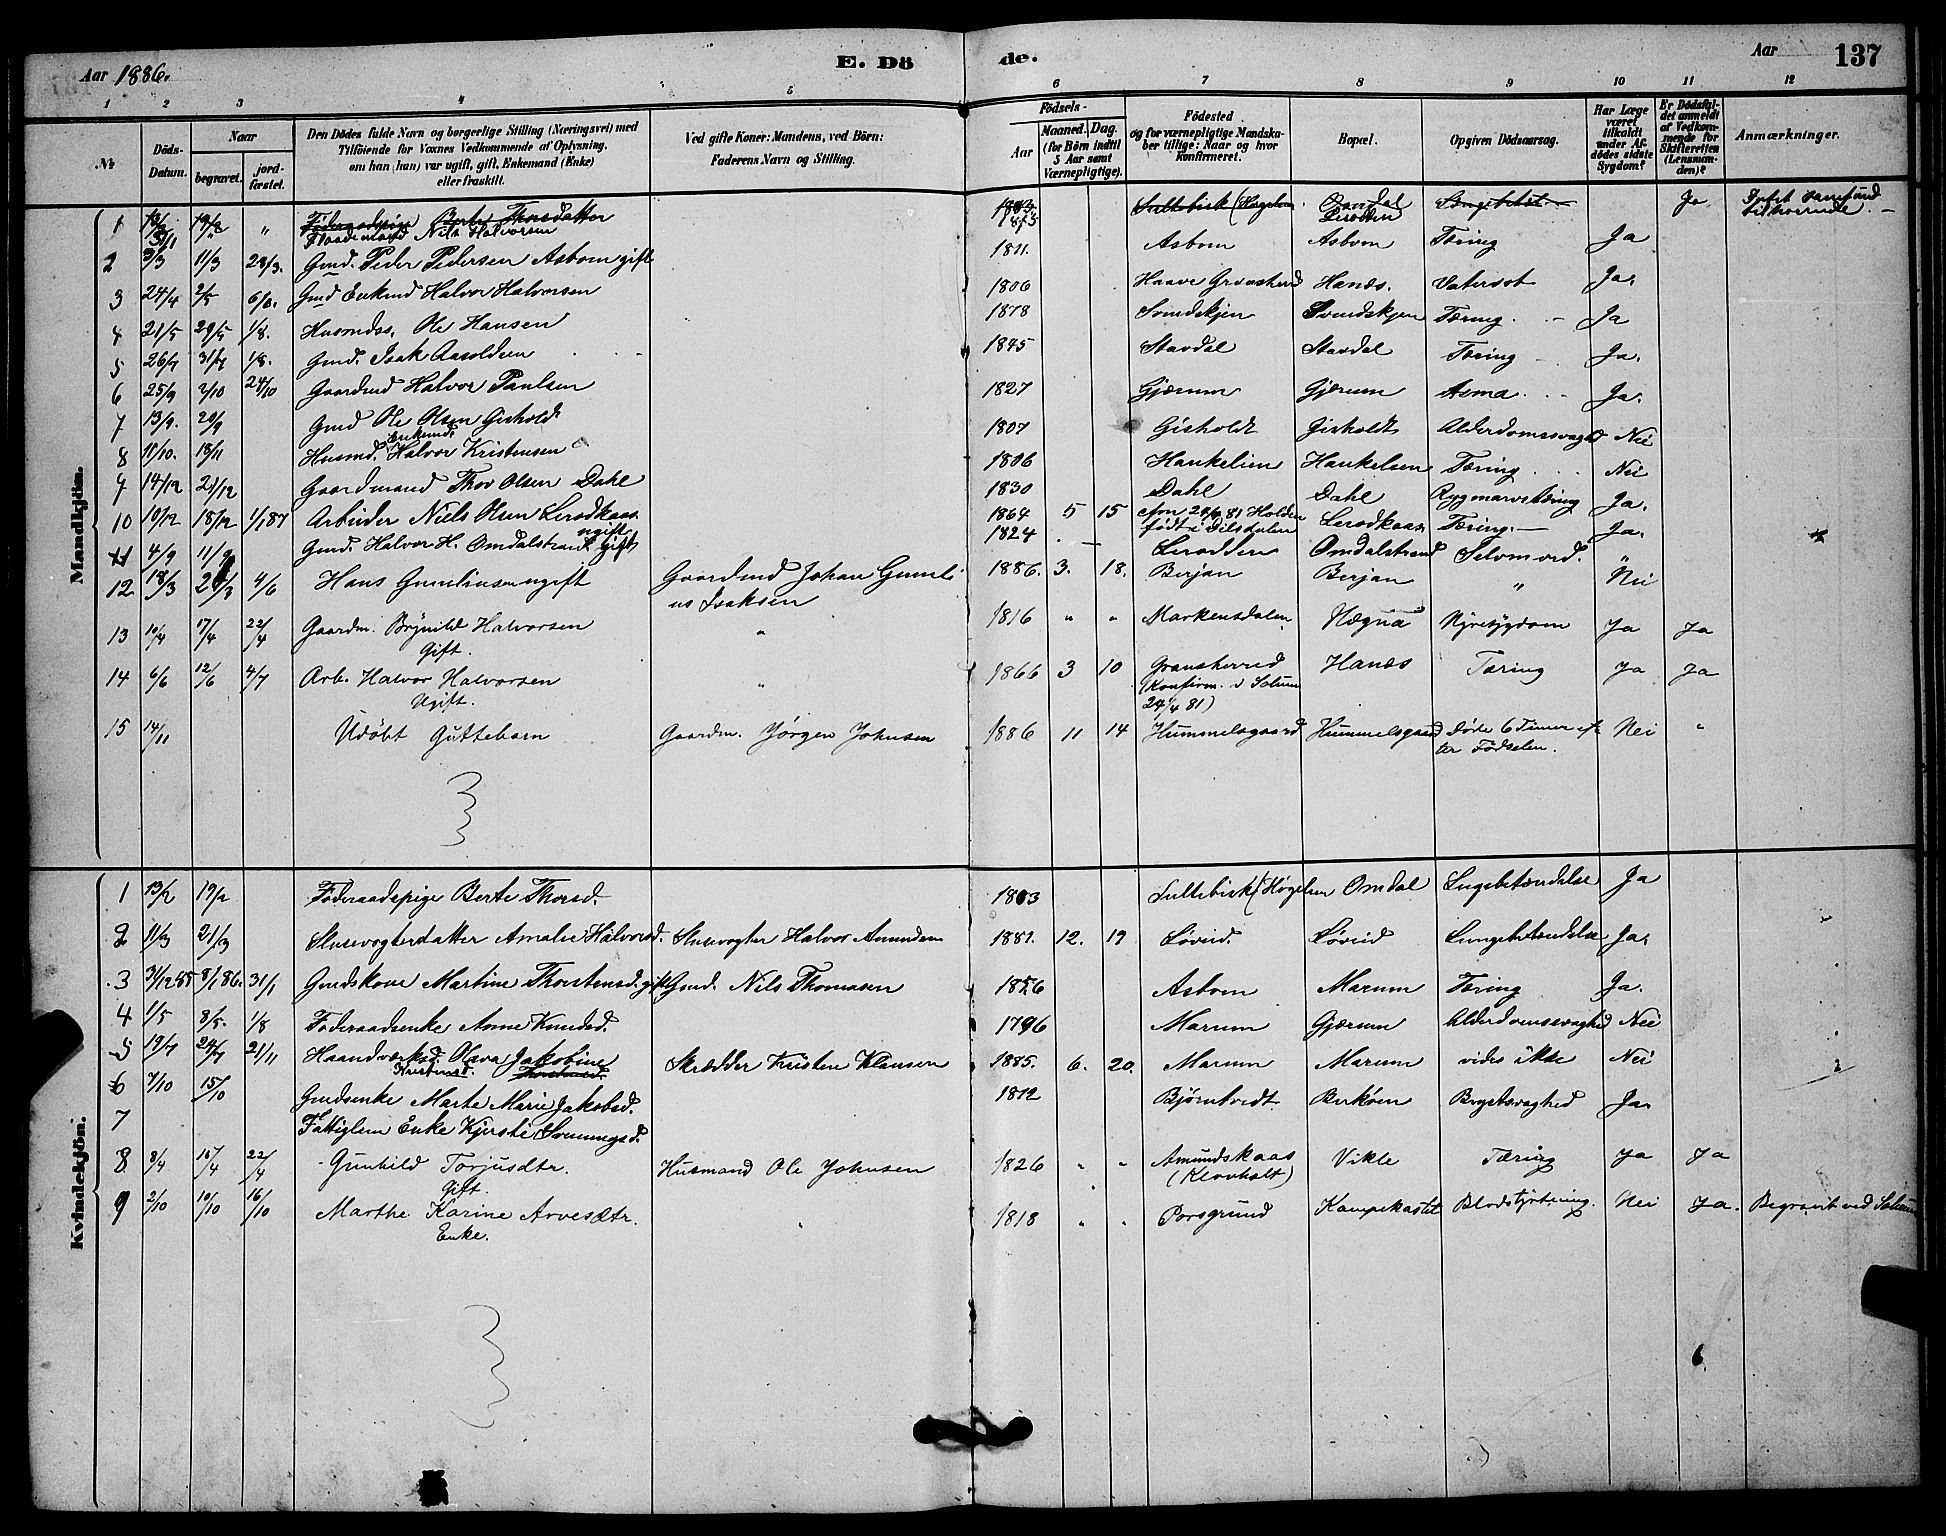 Aar 1886.
E. Dö
de.
Aar
137
1 2 3 4 5 6 7 8 9 10 11 12
No
Döds-Datum.
Naar
begravet.
jord-fæstet.
Den Dödes fulde Navn og borgerlige Stilling (Næringsvei) med
Tilföiende for Voxnes Vedkommende af Oplysning,
om han (hun) var ugift, gift, Enkemand (Enke)
eller fraskilt.
Ved gifte Koner: Mandens, ved Börn:
Faderens Navn og Stilling.
Födsels-
Aar
Maaned. Dag.
(for Börn indtil
5 Aar samt
Værnepligtige).
Födested
og for værnepligtige Mandska-
ber tillige: Naar og hvor
konfirmeret.
Bopæl.
Opgiven Dödsaarsag.
Har Læge
været
tilkaldt
under Af-
dödes sidste
Sygdom?
Er Dödsfal-
det anmeldt
af Vedkom-
mende for
Skifteretten
(Lensman-
den)?
Anmærkninger.
Mandkjön.
1 13/2 19/2 " Föderaadspige Berte Thorsdatter 1803 Sultebisk (Høgelien Omdal Lungebetæt Ja
31/1 Nils Halvorsen
2 3/3 11/3 28/3. Gmd. Peder Pedersen Asbom gift 1811. Asbom Asbom Tæring Ja
3 24/4 2/5 6/6. Gmd Enkmd Halvor Halvorsen 1806 Haave Gransherred Hanæs. Vatersot Ja.
4 21/5 29/5 1/8. Husmdss. Ole Hansen 1878 Svendskjen Svendskjen Tæring. Ja
5 26/7 31/7 1/8. Gmd. Isak Aasoldsen 1845 Stavdal Stavdal Tæring Ja.
6 25/9 2/10 24/10 Gaardmd Halvor Paulsen 1827 Gjærum Gjærum Asma Ja.
7 13/9. 20/9 Gmd Ole Olsen Gisholdt 1807 Gisholdt Gisholdt Alderdomssvaghed Nei
8 11/10. 18/11 Husmd. Enkemd. Halvor Kristensen 1806 Haukelien Haukelien Tæring Nei
9 14/12 21/12 Gaardmand Thor Olsen Dahl 1830 Dahl Dahl Rygmarvstæring Ja.
10 10/12 18/12 1/1 87 Arbeider Niels Olsen Lerodkaas ugift 1864 5 15 24/4 81 Holden født i Lerodkaas Tæring. Ja.
11 4/9 11/9 Gmd. Halvor H. Omdalstrand Gift 1824 Omdalstrand Selvmord. "
12 18/3 28/3 4/6 Hans Gumeliusen ugift Gaardmd Johan Gumeli
us Isaksen 1886. 3. 18. Berjan Berjan " Nei
13 10/4 17/4 22/4 Gaardm. Brynild Halvorsen " 1816 " " Markensdalen Nægua Nyresygdom Ja Ja
Gift.
14 6/6 12/6 4/7 Arb. Halvor Halvorsen " 1866 3 10 Gransherred Hanæs Tæring Ja Ja
Ugift. (Konfirm. v Solum
24/4 81)
15 14/11 Udöbt Guttebarn Gaardm. Jörgen Johnsen 1886 11 14 Hummelsgaard Hummelsgaard Døde 6 Timer ef- Nei "
ter Födselen.
Kvindekjön.
1 13/2 19/2 Föderaadspige Berte Thorsd. 1803 Sultebisk (Høgelien Omdal Lugebetændelse Ja
2 11/3 21/3 Slusevogterdatter Amalie Halvorsd. Slusevogter Halvor Amundsen 1881. 12. 19 Löveid. Löveid Lungebetændelse Ja.
3 31/12 85 8/1 86. 31/1 Gmdskone Martine Thorstensd. gift Gmd. Nils Thomasen 1856 Asbom Marum Tæring Ja.
4 1/5 8/5. 1/8 Föderaadsenke Anne Knudsd. 1796 Marum Gjærum Alderdomssvaghed Nei
5 19/7 24/7 21/11 Haandværksd. Olava Jakobine
Kristensd. Skrædder Kristen Klausen 1885. 6. 20. Marum Marum vides ikke Nei
6 7/10 15/10 Gmdsenke Marte Marie Jakobsd. 1812 Björntvedt Berköen Brystsvaghed Ja.
7 Fattiglem Enke Kjersti Sommegsd.
8 8/4 15/4 22/4 Gunhild Torjusdtr. Husmand Ole Johnsen 1826 " " Amundskaas Vikle Tæring Ja Ja
Gift. (Klovholt)
9 2/10 10/10 16/10 Marthe Karine Arvesdtr. " 1818 " " Porsgrund Kampekastet Blodstyrtning. Nei Ja. Begravet ved Solum
Enke.
6.